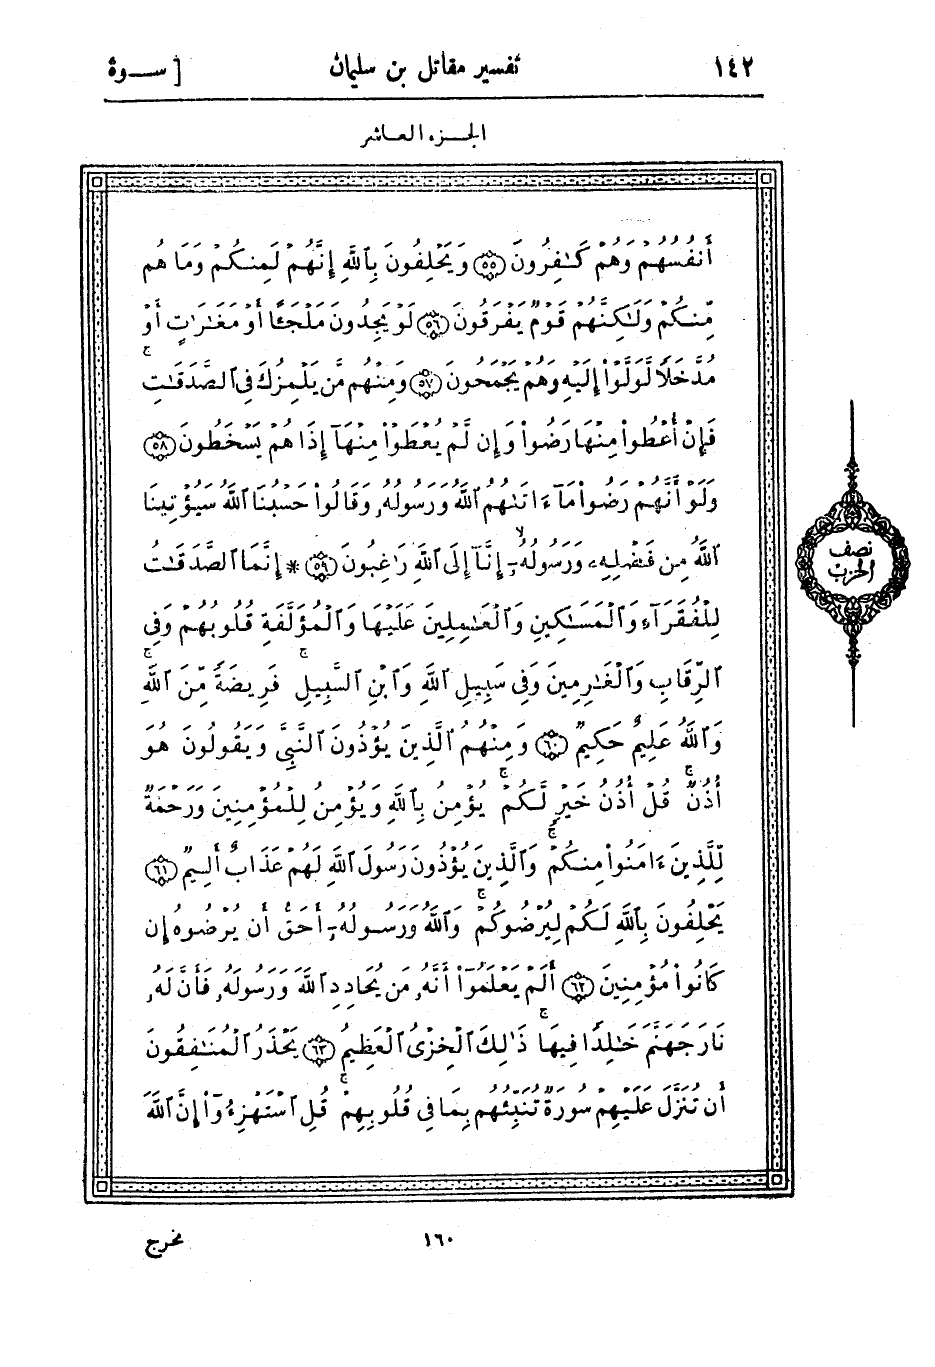 ١٤٢
تفسير مقاتل بن سليمان
[ ســورة
الجـزء العـاشر
أَنفُسُهُمْ وَهُمْ كَـٰفِرُونَ ٥٥ وَيَحْلِفُونَ بِٱللَّهِ إِنَّهُمْ لَمِنكُمْ وَمَا هُم
مِّنكُمْ وَلَـٰكِنَّهُمْ قَوْمٌ يَفْرَقُونَ ٥٦ لَوْ يَجِدُونَ مَلْجَـًٔا أَوْ مَغَـٰرَٰتٍ أَوْ
مُدَّخَلًا لَّوَلَّوْا۟ إِلَيْهِ وَهُمْ يَجْمَحُونَ ٥٧ وَمِنْهُم مَّن يَلْمِزُكَ فِى ٱلصَّدَقَـٰتِ
فَإِنْ أُعْطُوا۟ مِنْهَا رَضُوا۟ وَإِن لَّمْ يُعْطَوْا۟ مِنْهَآ إِذَا هُمْ يَسْخَطُونَ ٥٨
وَلَوْ أَنَّهُمْ رَضُوا۟ مَآ ءَاتَىٰهُمُ ٱللَّهُ وَرَسُولُهُۥ وَقَالُوا۟ حَسْبُنَا ٱللَّهُ سَيُؤْتِينَا
ٱللَّهُ مِن فَضْلِهِۦ وَرَسُولُهُۥٓ إِنَّآ إِلَى ٱللَّهِ رَٰغِبُونَ ٥٩ * إِنَّمَا ٱلصَّدَقَـٰتُ
لِلْفُقَرَآءِ وَٱلْمَسَـٰكِينِ وَٱلْعَـٰمِلِينَ عَلَيْهَا وَٱلْمُؤَلَّفَةِ قُلُوبُهُمْ وَفِى
ٱلرِّقَابِ وَٱلْغَـٰرِمِينَ وَفِى سَبِيلِ ٱللَّهِ وَٱبْنِ ٱلسَّبِيلِ ۖ فَرِيضَةً مِّنَ ٱللَّهِ ۗ
وَٱللَّهُ عَلِيمٌ حَكِيمٌ ٦٠ وَمِنْهُمُ ٱلَّذِينَ يُؤْذُونَ ٱلنَّبِىَّ وَيَقُولُونَ هُوَ
أُذُنٌ ۚ قُلْ أُذُنُ خَيْرٍ لَّكُمْ ۚ يُؤْمِنُ بِٱللَّهِ وَيُؤْمِنُ لِلْمُؤْمِنِينَ وَرَحْمَةٌ
لِّلَّذِينَ ءَامَنُوا۟ مِنكُمْ ۚ وَٱلَّذِينَ يُؤْذُونَ رَسُولَ ٱللَّهِ لَهُمْ عَذَابٌ أَلِيمٌ ٦١
يَحْلِفُونَ بِٱللَّهِ لَكُمْ لِيُرْضُوكُمْ ۚ وَٱللَّهُ وَرَسُولُهُۥٓ أَحَقُّ أَن يُرْضُوهُ إِن
كَانُوا۟ مُؤْمِنِينَ ٦٢ أَلَمْ يَعْلَمُوٓا۟ أَنَّهُۥ مَن يُحَادِدِ ٱللَّهَ وَرَسُولَهُۥ فَأَنَّ لَهُۥ
نَارَ جَهَنَّمَ خَـٰلِدًا فِيهَا ۚ ذَٰلِكَ ٱلْخِزْىُ ٱلْعَظِيمُ ٦٣ يَحْذَرُ ٱلْمُنَـٰفِقُونَ
أَن تُنَزَّلَ عَلَيْهِمْ سُورَةٌ تُنَبِّئُهُم بِمَا فِى قُلُوبِهِمْ ۚ قُلِ ٱسْتَهْزِءُوٓا۟ إِنَّ ٱللَّهَ
نصف
الحزب
١٦٠
مخرج